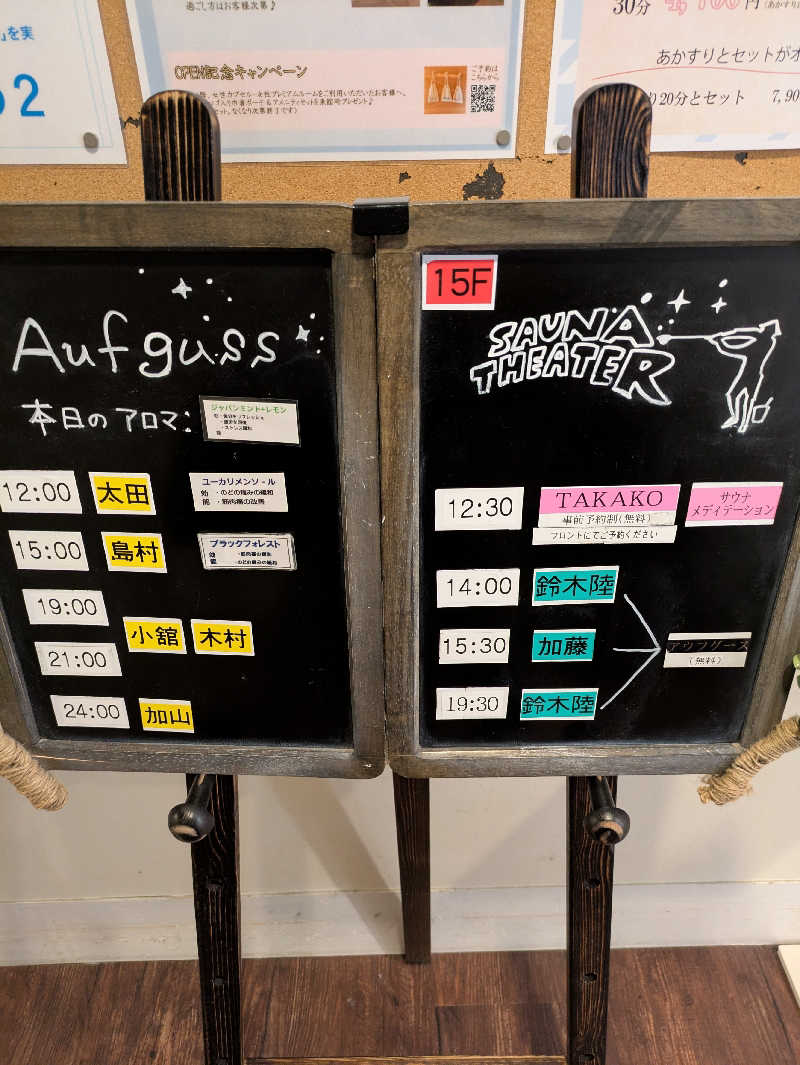 過ごし方はお客様次第♪
OPEN記念キャンペーン
ご予約は
こちらから
30分
あかすりとセットがオ
20分とセット 7,90
Aufguss
本日のアロマ:
ジャパンミント+レモン
12:00 太田
ユーカリメンソール
効 ・のどの痛みの緩和
能 ・筋肉痛の改善
15:00 島村
ブラックフォレスト
19:00
小舘 木村
21:00
24:00 加山
15F
SAUNA
THEATER
12:30 TAKAKO
事前予約制(無料)
フロントにてご予約ください
サウナ
メディテーション
14:00 鈴木陸
15:30 加藤
アウフグース
(無料)
19:30 鈴木陸